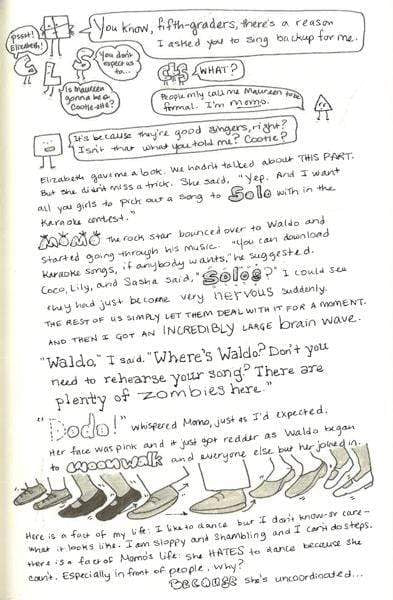 pssst! Elizabeth!
You know, fifth-graders, there's a reason
I asked you to sing backup for me.
G L S
You don't
expect us
to...
Is Maureen
gonna be a
Cootie-tie?
WHAT?
People only call me Maureen to be
formal. I'm MOMO.
It's because they're good singers, right?
Isn't that what you told me? Cootie?
Elizabeth gave me a look. We hadn't talked about THIS PART.
But she didn't miss a trick. She said, "Yep. And I want
all you girls to pick out a song to Solo with in the
karaoke contest."
MOMO the rock star bounced over to Waldo and
started going through his music. "You can download
karaoke songs, if anybody wants," he suggested.
Coco, Lily, and Sasha said, "Solos?" I could see
they had just become very nervous suddenly.
THE REST OF US SIMPLY LET THEM DEAL WITH IT FOR A MOMENT.
AND THEN I GOT AN INCREDIBLY LARGE brain wave.
"Waldo," I said. "Where's Waldo? Don't you
need to rehearse your song? There are
plenty of zombies here."
"Dodo!" whispered Momo, just as I'd expected.
Her face was pink and it just got redder as Waldo began
to moonwalk and everyone else but her joined in.
Here is a fact of my life: I like to dance but I don't know–or care–
what it looks like. I am sloppy and shambling and I can't do steps.
there is a fact of Momo's life: she HATES to dance because she
can't. Especially in front of people. Why?
BECAUSE she's uncoordinated...